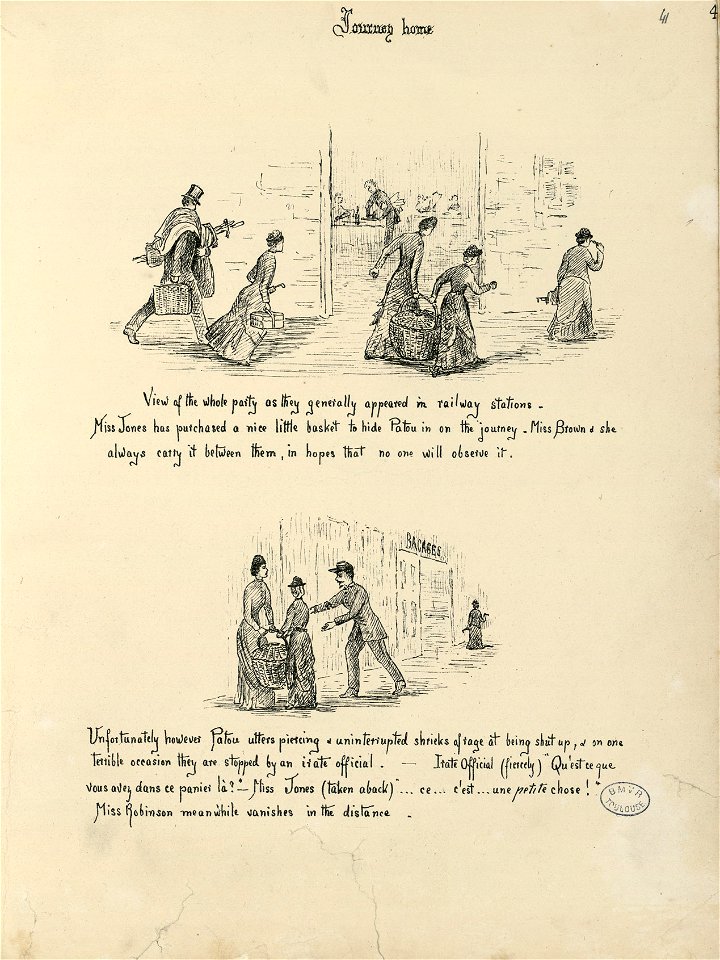 41
4
Journey home
View of the whole party as they generally appeared in railway stations -
Miss Jones has purchased a nice little basket to hide Patou in on the journey - Miss Brown & she
always carry it between them, in hopes that no one will observe it.
BAGAGES
Unfortunately however Patou utters piercing & uninterrupted shrieks of rage at being shut up, & on one
terrible occasion they are stopped by an irate official. — Irate Official (fiercely) "Qu'est ce que
vous avez dans ce panier là?" – Miss Jones (taken aback) "... ce... c'est... une petite chose!"
Miss Robinson meanwhile vanishes in the distance -
B M V R
TOULOUSE